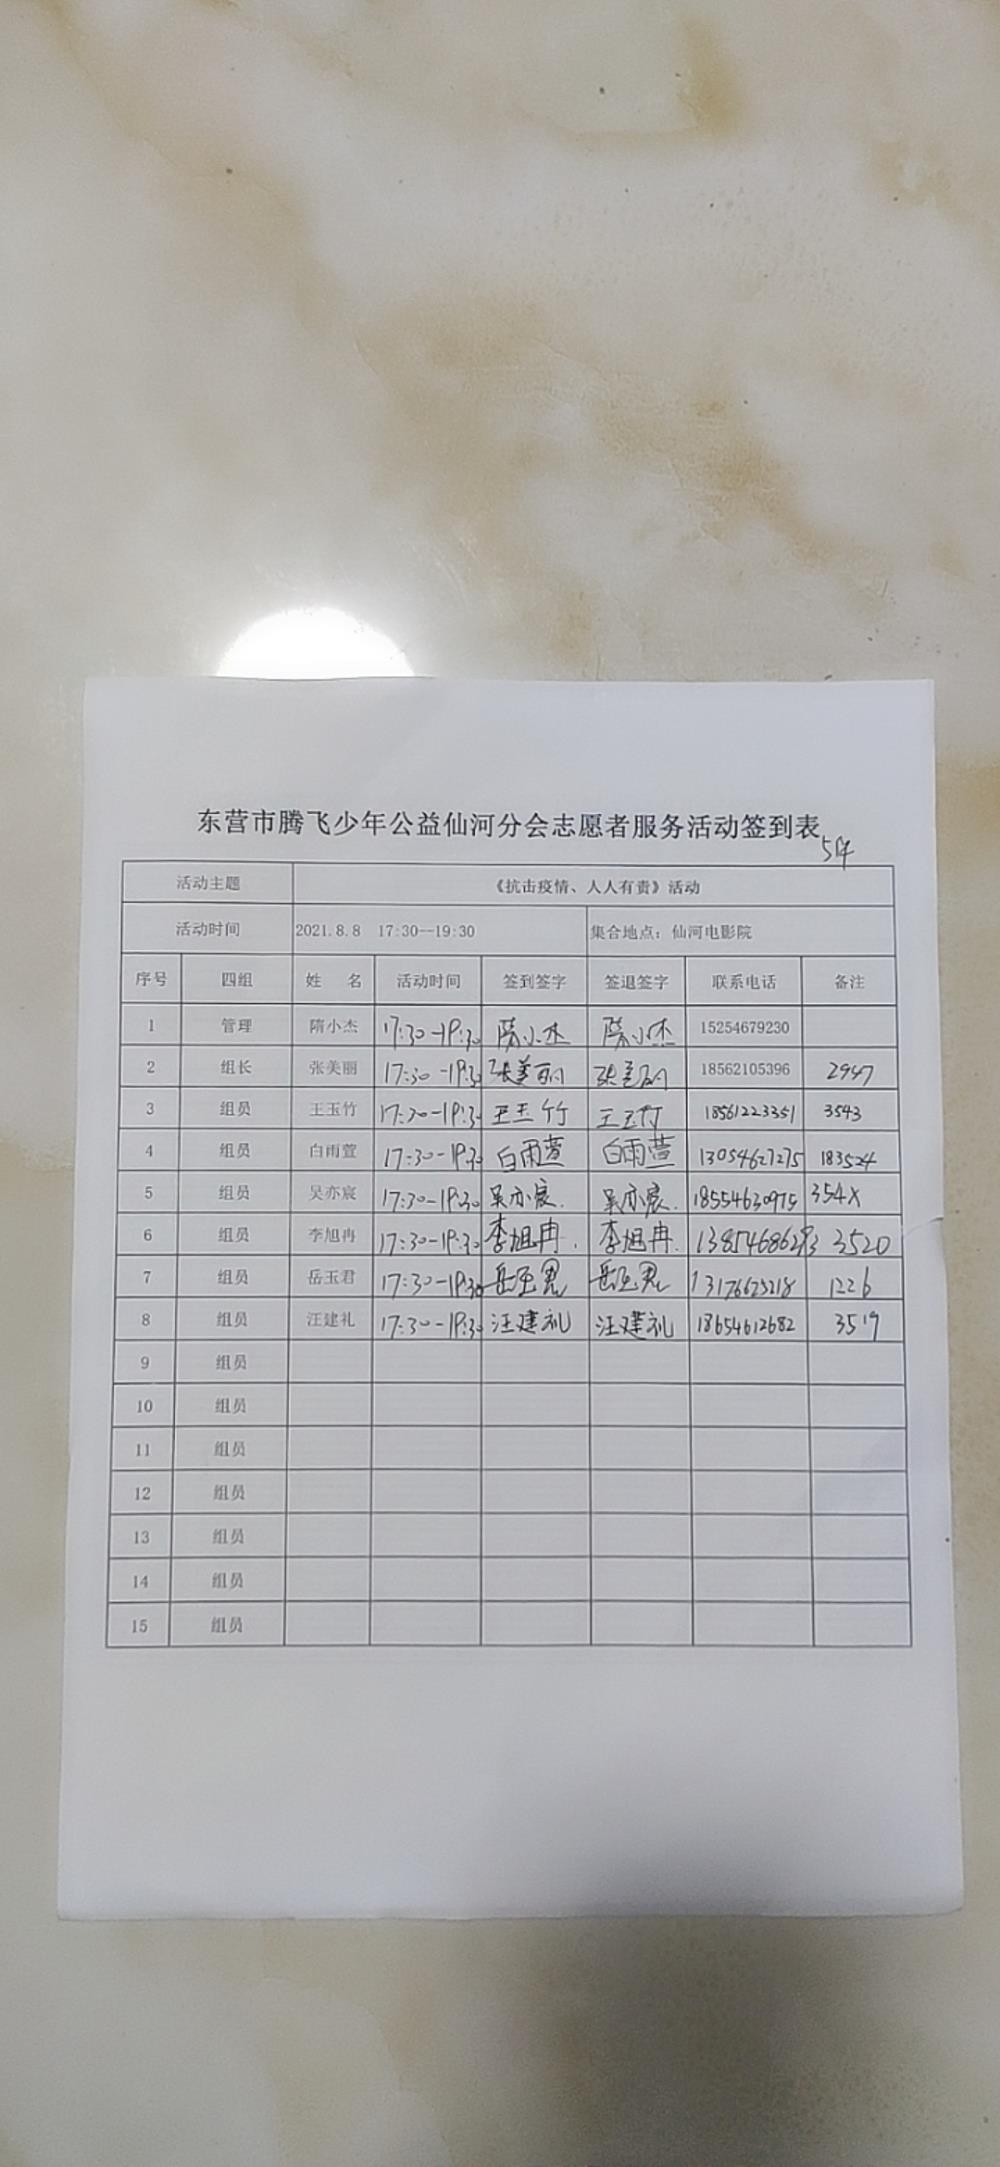 东营市腾飞少年公益仙河分会志愿者服务活动签到表
活动主题 《抗击疫情、人人有责》活动
活动时间 2021.8.8 17:30--19:30 集合地点：仙河电影院
序号 四组 姓 名 活动时间 签到签字 签退签字 联系电话 备注
1 管理 隋小杰 17:30-19:30 隋小杰 隋小杰 15254679230
2 组长 张美丽 17:30-19:30 张美丽 张美丽 18562105396 2947
3 组员 王玉竹 17:30-19:30 王玉竹 王玉竹 18561223351 3543
4 组员 白雨萱 17:30-19:30 白雨萱 白雨萱 13054627275 183524
5 组员 吴亦宸 17:30-19:30 吴亦宸. 吴亦宸. 18554630975 354X
6 组员 李旭冉 17:30-19:30 李旭冉. 李旭冉. 3520
7 组员 岳玉君 17:30-19:30 岳玉君 岳玉君 13176625218 1226
8 组员 汪建礼 17:30-19:30 汪建礼 汪建礼 18654612682 3519
9 组员
10 组员
11 组员
12 组员
13 组员
14 组员
15 组员